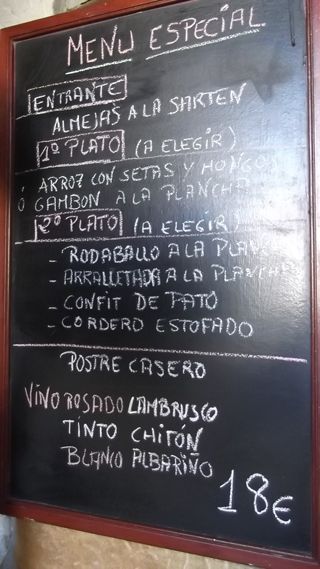 MENU ESPECIAL
ENTRANTE
ALMEJAS A LA SARTEN
1º PLATO (A ELEGIR)
ARROZ CON SETAS Y HONGOS
Ó GAMBON A LA PLANCHA
2º PLATO (A ELEGIR)
- RODABALLO A LA PLAN
- ARRALLETADA A LA PLANCHA
- CONFIT DE PATO
- CORDERO ESTOFADO
POSTRE CASERO
VINO ROSADO LAMBRUSCO
TINTO CHITÓN
BLANCO ALBARIÑO
18€